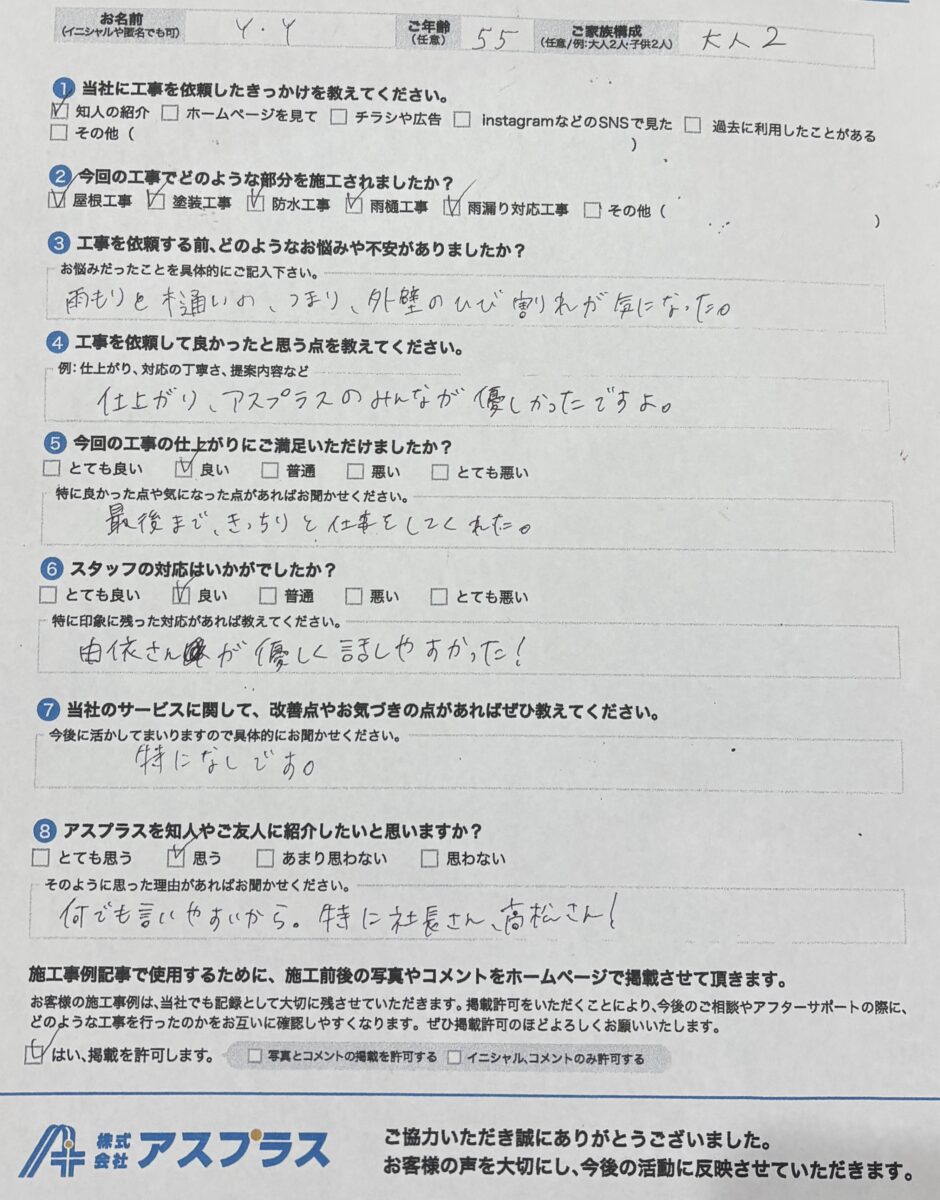 お名前
(イニシャルや匿名でも可)
Y.Y
ご年齢
(任意)
55
ご家族構成
(任意/例:大人2人・子供2人)
大人2
1 当社に工事を依頼したきっかけを教えてください。
知人の紹介 ホームページを見て チラシや広告 instagramなどのSNSで見た 過去に利用したことがある
その他( )
2 今回の工事でどのような部分を施工されましたか?
屋根工事 塗装工事 防水工事 雨樋工事 雨漏り対応工事 その他( )
3 工事を依頼する前、どのようなお悩みや不安がありましたか?
お悩みだったことを具体的にご記入下さい。
雨もりと樋の、つまり、外壁のひび割れが気になった。
4 工事を依頼して良かったと思う点を教えてください。
例:仕上がり、対応の丁寧さ、提案内容など
仕上がり、アスプラスのみんなが優しかったですよ。
5 今回の工事の仕上がりにご満足いただけましたか?
とても良い 良い 普通 悪い とても悪い
特に良かった点や気になった点があればお聞かせください。
最後まで、きっちりと仕事をしてくれた。
6 スタッフの対応はいかがでしたか?
とても良い 良い 普通 悪い とても悪い
特に印象に残った対応があれば教えてください。
由依さんが優しく話しやすかった!
7 当社のサービスに関して、改善点やお気づきの点があればぜひ教えてください。
今後に活かしてまいりますので具体的にお聞かせください。
特になしです。
8 アスプラスを知人やご友人に紹介したいと思いますか?
とても思う 思う あまり思わない 思わない
そのように思った理由があればお聞かせください。
何でも言いやすいから。特に社長さん、高松さん!
施工事例記事で使用するために、施工前後の写真やコメントをホームページで掲載させて頂きます。
お客様の施工事例は、当社でも記録として大切に残させていただきます。掲載許可をいただくことにより、今後のご相談やアフターサポートの際に、
どのような工事を行ったのかをお互いに確認しやすくなります。ぜひ掲載許可のほどよろしくお願いいたします。
はい、掲載を許可します。 写真とコメントの掲載を許可する イニシャル、コメントのみ許可する
株式会社 アスプラス
ご協力いただき誠にありがとうございました。
お客様の声を大切にし、今後の活動に反映させていただきます。